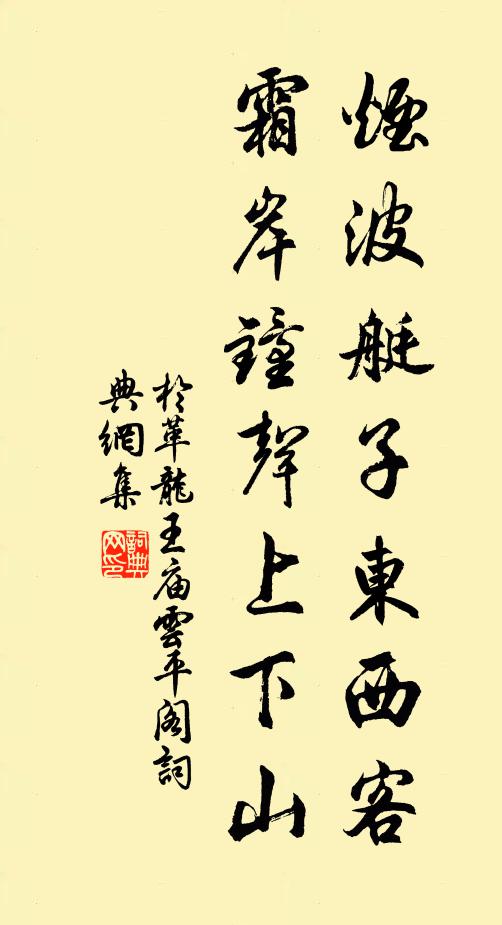 煙波艇子東西客
霜岸鐘聲上下山
於華龍王庙雲平阁詞
典網集
詞典
网印